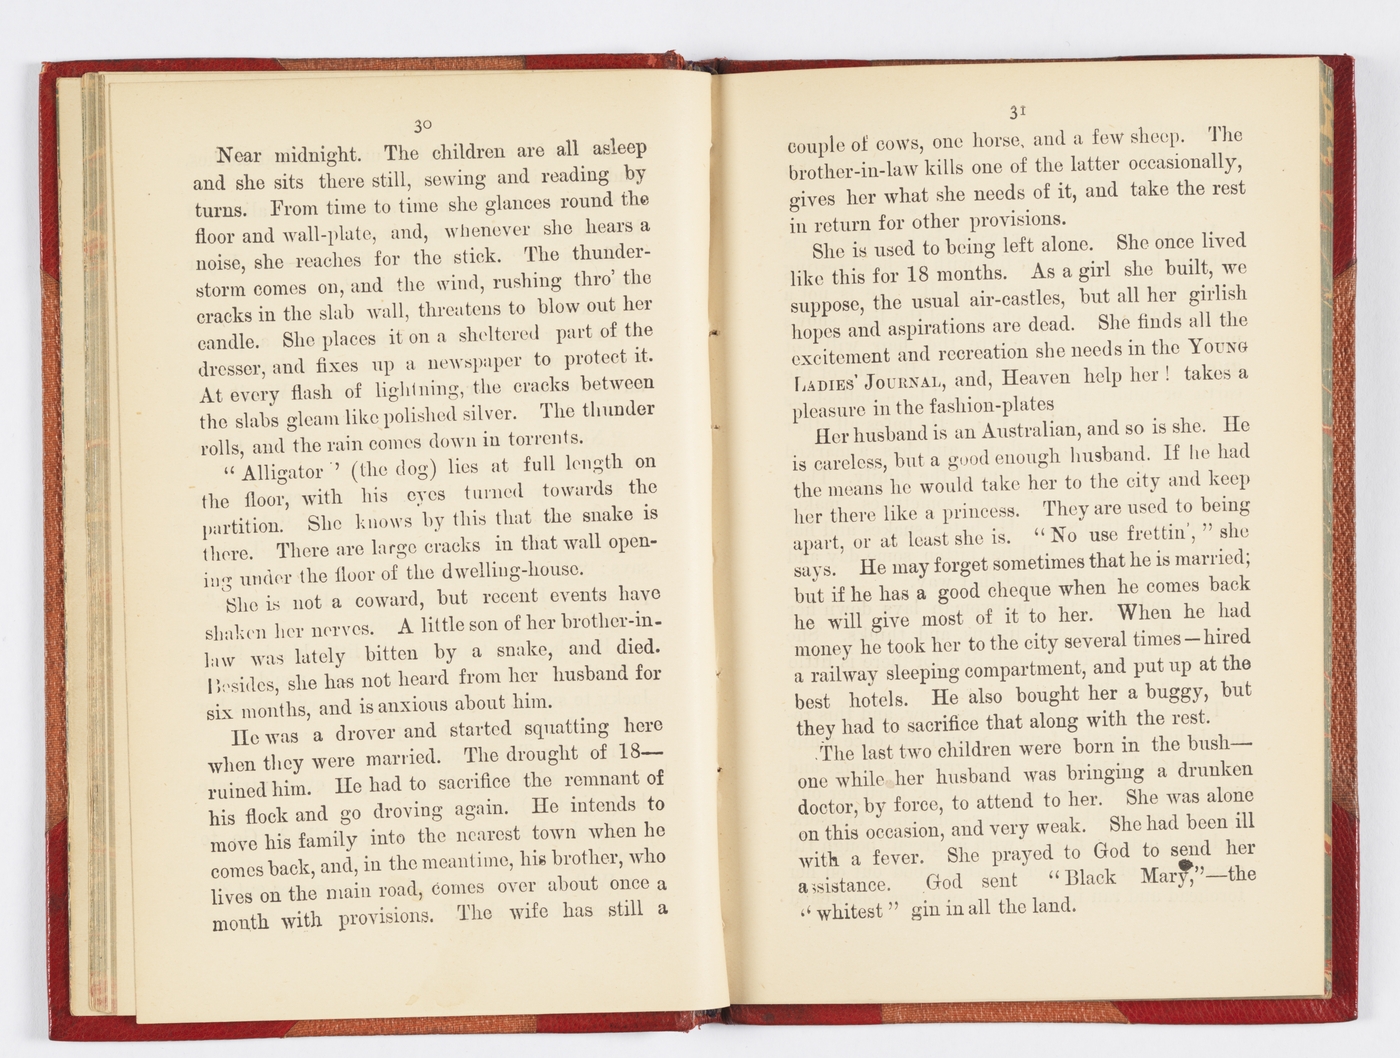 30
Near midnight. The children are all asleep
and she sits there still, sewing and reading by
turns. From time to time she glances round the
floor and wall-plate, and, whenever she hears a
noise, she reaches for the stick. The thunder-
storm comes on, and the wind, rushing thro' the
cracks in the slab wall, threatens to blow out her
candle. She places it on a sheltered part of the
dresser, and fixes up a newspaper to protect it.
At every flash of lightning, the cracks between
the slabs gleam like polished silver. The thunder
rolls, and the rain comes down in torrents.
“ Alligator ’ (the dog) lies at full length on
the floor, with his eyes turned towards the
partition. She knows by this that the snake is
there. There are large cracks in that wall open-
ing under the floor of the dwelling-house.
She is not a coward, but recent events have
shaken her nerves. A little son of her brother-in-
law was lately bitten by a snake, and died.
Besides, she has not heard from her husband for
six months, and is anxious about him.
He was a drover and started squatting here
when they were married. The drought of 18—
ruined him. He had to sacrifice the remnant of
his flock and go droving again. He intends to
move his family into the nearest town when he
comes back, and, in the meantime, his brother, who
lives on the main road, comes over about once a
month with provisions. The wife has still a
31
couple of cows, one horse, and a few sheep. The
brother-in-law kills one of the latter occasionally,
gives her what she needs of it, and take the rest
in return for other provisions.
She is used to being left alone. She once lived
like this for 18 months. As a girl she built, we
suppose, the usual air-castles, but all her girlish
hopes and aspirations are dead. She finds all the
excitement and recreation she needs in the YOUNG
LADIES' JOURNAL, and, Heaven help her ! takes a
pleasure in the fashion-plates
Her husband is an Australian, and so is she. He
is careless, but a good enough husband. If he had
the means he would take her to the city and keep
her there like a princess. They are used to being
apart, or at least she is. “ No use frettin', ” she
says. He may forget sometimes that he is married;
but if he has a good cheque when he comes back
he will give most of it to her. When he had
money he took her to the city several times—hired
a railway sleeping compartment, and put up at the
best hotels. He also bought her a buggy, but
they had to sacrifice that along with the rest.
The last two children were born in the bush—
one while her husband was bringing a drunken
doctor, by force, to attend to her. She was alone
on this occasion, and very weak. She had been ill
with a fever. She prayed to God to send her
assistance. God sent “ Black Mary,”—the
“ whitest ” gin in all the land.